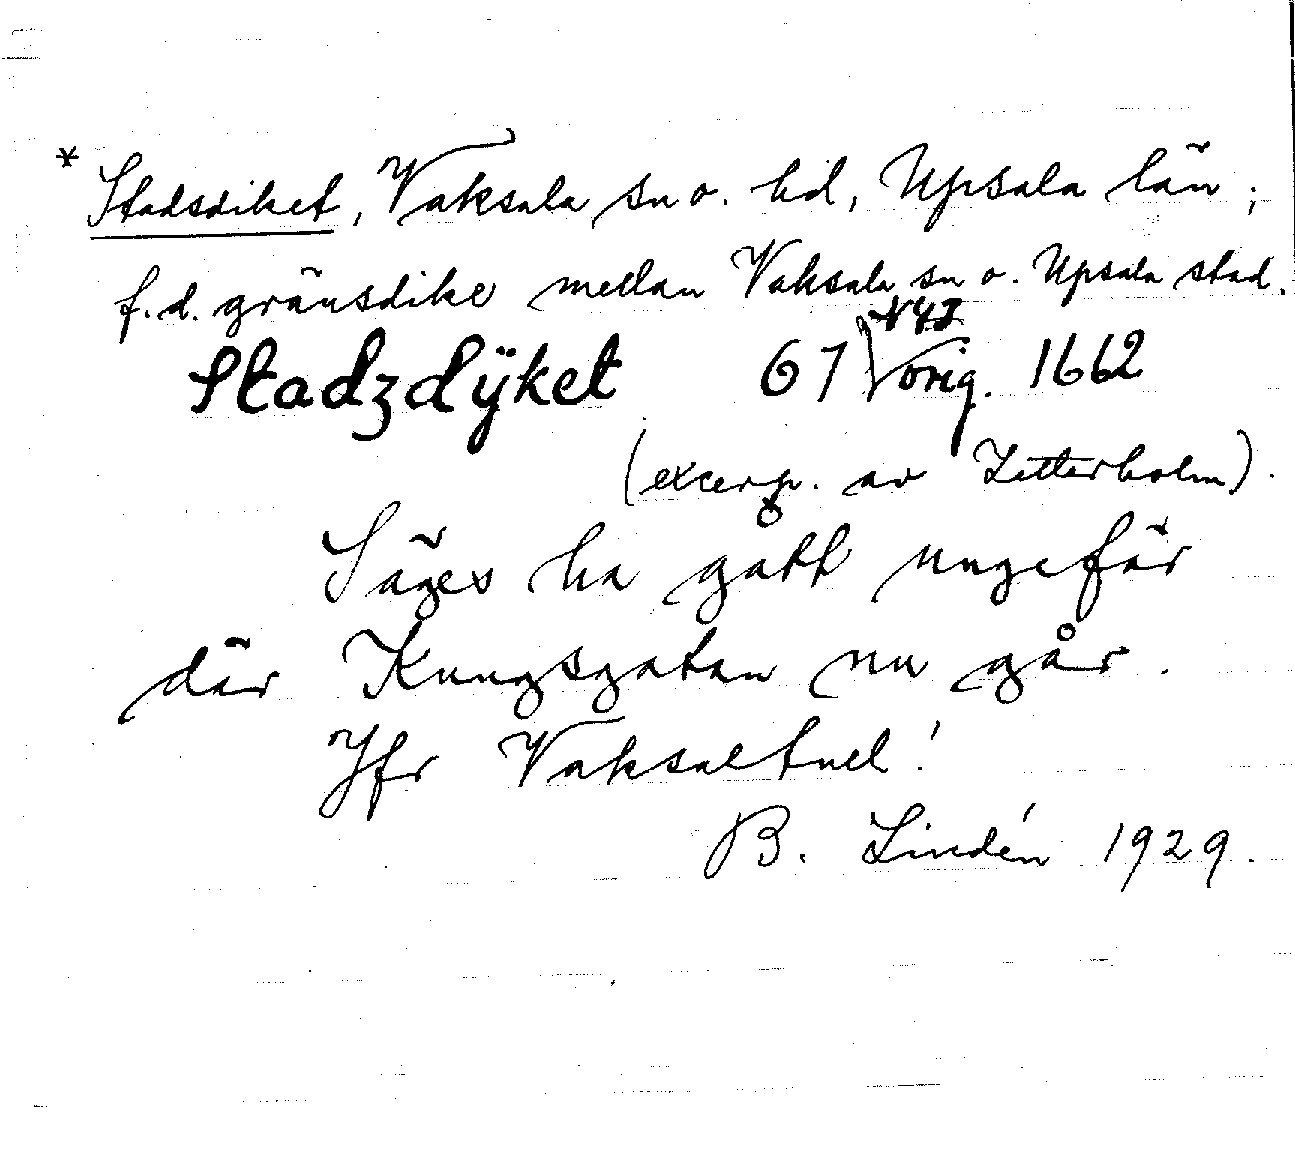 * Stadsdiket, Vaksala sn o. hd, Upsala län;
f.d. gränsdike mellan Vaksala sn o. Upsala stad.
Stadzdÿket 67 orig. 1662
(excerp. av Zetterholm).
Säges ha gått ungefär
där Kungsgatan nu går.
Jfr Vaksaltull!
B. Lindén 1929.